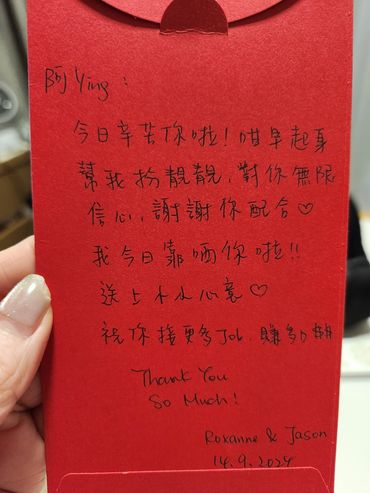 阿Ying：
今日辛苦你啦！咁早起身
幫我扮靚靚，對你無限
信心，謝謝你配合♡
我今日靠晒你啦!!
送上小小心意♡
祝你接更多Job，賺多D
Thank You
So Much!
Roxanne & Jason
14.9.2024